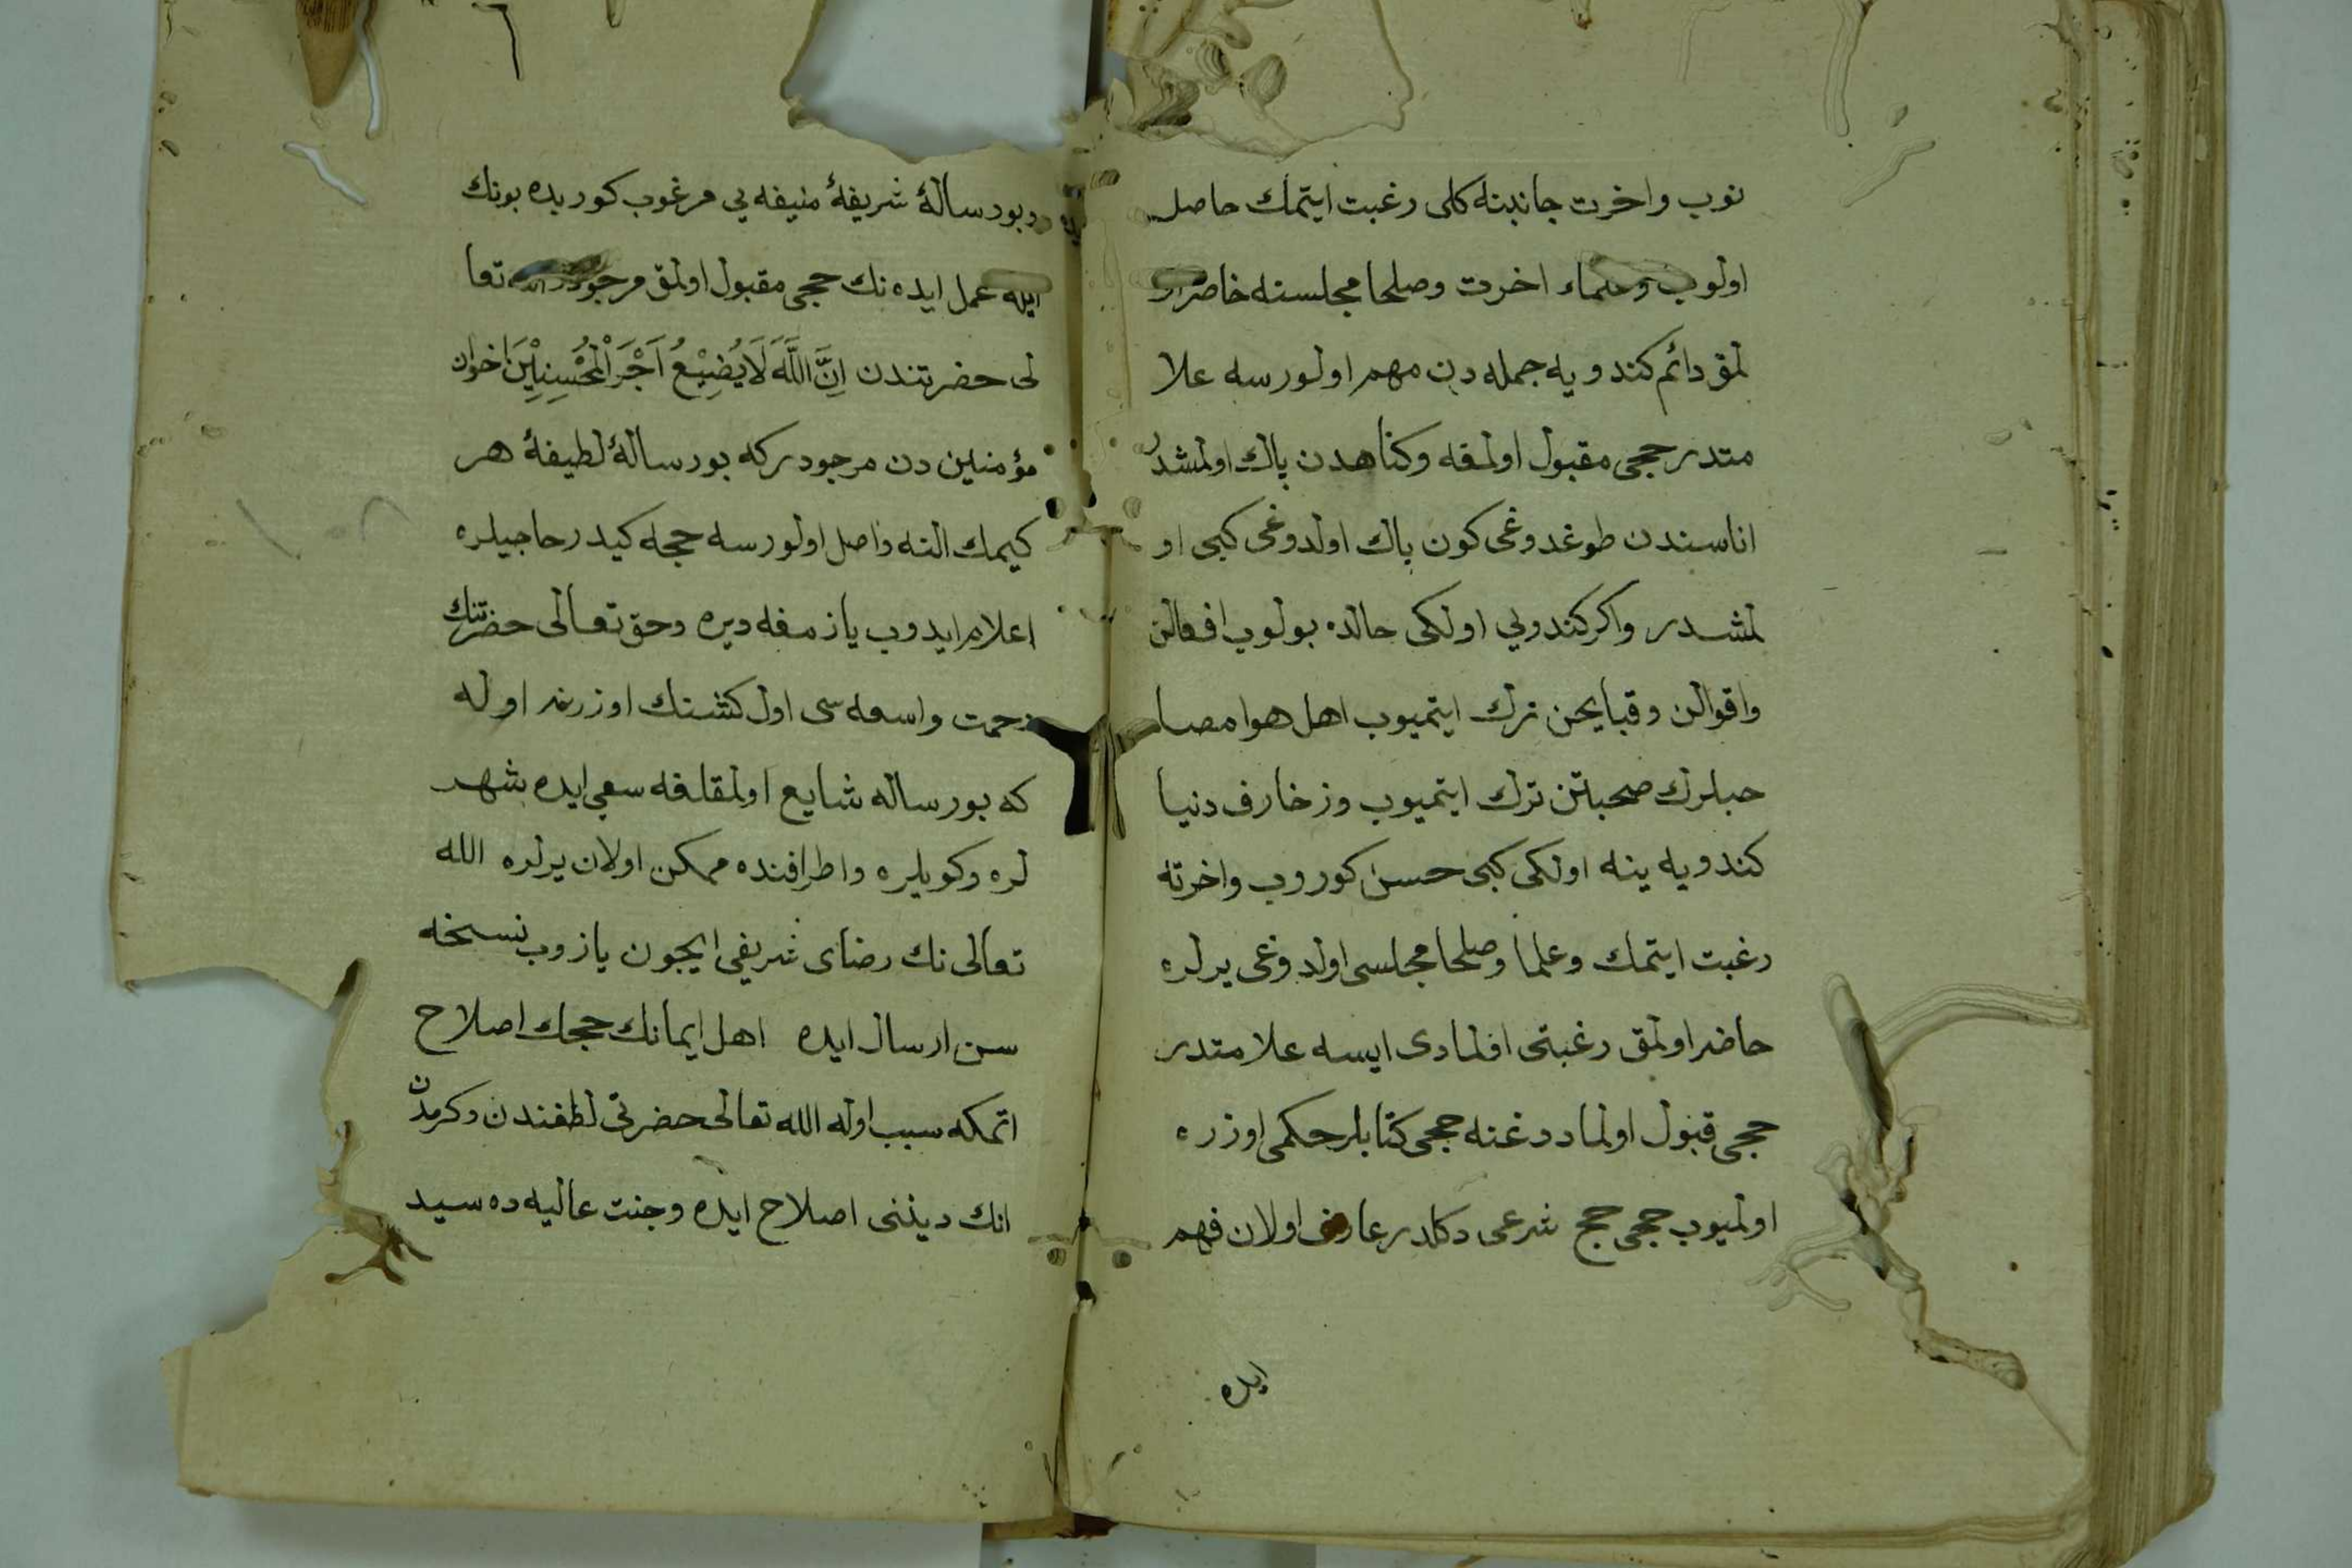 نوب واخرت جانبنه كلى رغبت ايتمك حاصل
اولوب وحكماء اخرت وصلحا مجلسنه حاضر او
لمق دائم كندويه جمله دن مهم اولورسه علا
متدر حجى مقبول اولمغه وكناهدن پاك اولمشدر
اناسندن طوغدوغى كون پاك اولدوغى كبى او
لمشدر واكر كندويى اولكى حالده بولوب افعالن
واقوالن وقبايحن ترك ايتميوب اهل هوا مصا
حبلرك صحبتن ترك ايتميوب وزخارف دنيا
كندويه ينه اولكى كبى حسن كوروب واخرته
رغبت ايتمك وعلما وصلحا مجلسى اولدوغى يرلره
حاضر اولمق رغبتى اولمادى ايسه علامتدر
حجى قبول اولمادوغنه حجى كتابلر حكمى اوزره
اولميوب حجى حج شرعى دكلدر عارف اولان فهم
ايده
وبو رسالۀ شريفۀ منيفه يى مرغوب كوريده بونك
ايله عمل ايده نك حجى مقبول اولمق مرجودر الله تعا
لى حضرتندن اِنَّ اللَّهَ لَا يُضِيْعُ اَجْرَ الْمُحْسِنِيْنَ اخوان
مؤمنين دن مرجودركه بو رسالۀ لطيفۀ هر
كيمك النه واصل اولورسه حجه كيدر حاجيلره
اعلام ايدوب يازمغه ديره وحق تعالى حضرتنك
رحمت واسعه سى اول كشنك اوزرينه اوله
كه بو رساله شايع اولمقلغه سعى ايده شهر
لره وكويلره واطرافنده ممكن اولان يرلره الله
تعالى نك رضاى شريفى ايچون يازوب نسخه
سن ارسال ايده اهل ايمانك حجك اصلاح
اتمكه سبب اوله الله تعالى حضرتى لطفندن وكرمدن
انك ديننى اصلاح ايده وجنت عاليه ده سيد